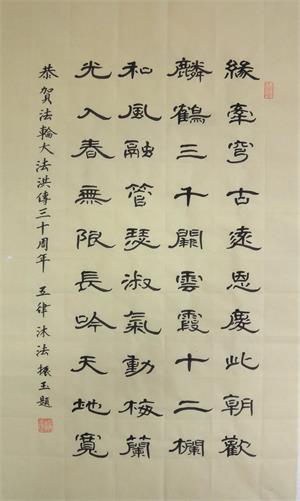 緣牽穹古遠恩慶此朝歡
麟鶴三千闕雲霞十二欄
和風融管瑟淑氣動梅蘭
光入春無限長吟天地寬
恭賀法輪大法洪傳三十周年 五律 沐法 振玉題